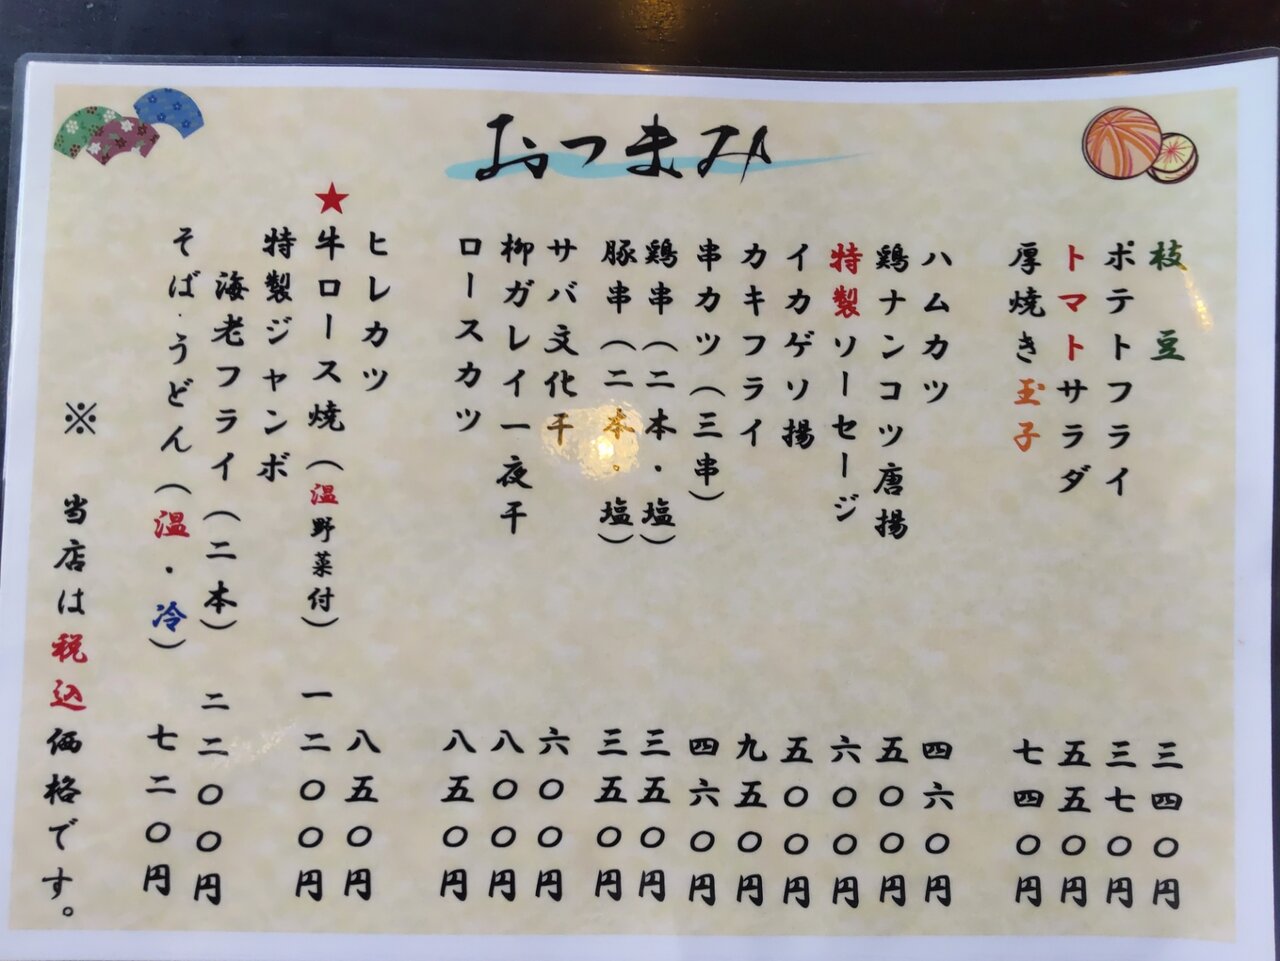 おつまみ
枝豆 三四〇円
ポテトフライ 三七〇円
トマトサラダ 五五〇円
厚焼き玉子 七四〇円
ハムカツ 四六〇円
鶏ナンコツ唐揚 五〇〇円
特製ソーセージ 六〇〇円
イカゲソ揚 五〇〇円
カキフライ 九五〇円
串カツ(三串) 四六〇円
鶏串(二本・塩) 三五〇円
豚串(二本・塩) 三五〇円
サバ文化干 六〇〇円
柳ガレイ一夜干 八〇〇円
ロースカツ 八五〇円
ヒレカツ 八五〇円
★牛ロース焼(温野菜付) 一二〇〇円
特製ジャンボ
海老フライ(二本) 二二〇〇円
そば・うどん(温・冷) 七二〇円
※ 当店は税込価格です。